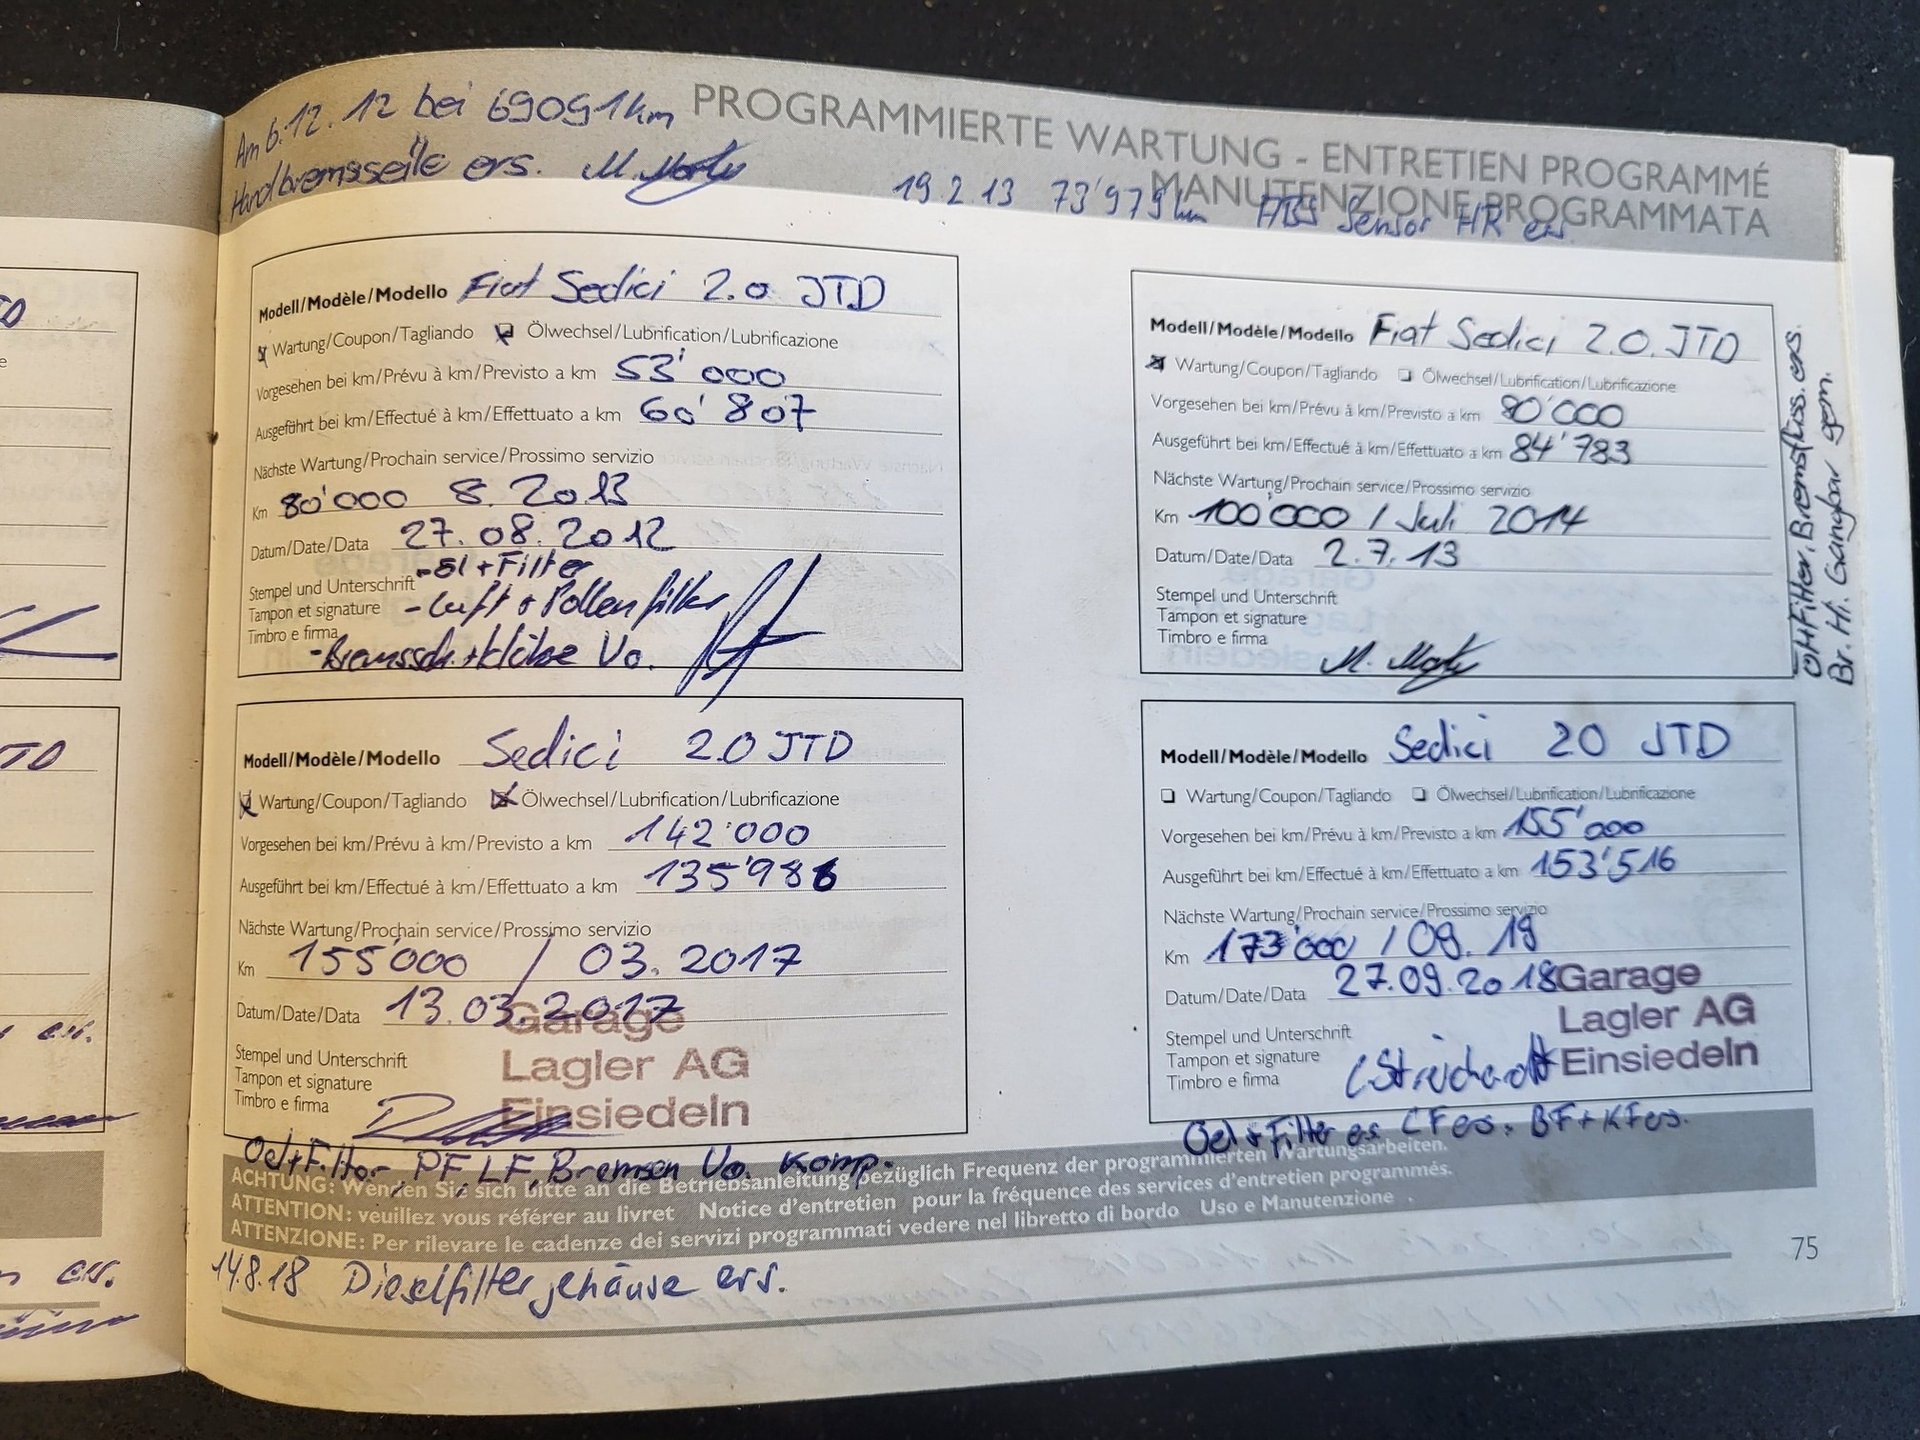 Am 6.12.12 bei 69091km
Handbremsseile ers. M.
PROGRAMMIERTE WARTUNG - ENTRETIEN PROGRAMMÉ
MANUTENZIONE PROGRAMMATA
19.2.13 73'979km ABS Sensor HR ers
Modell/Modèle/Modello Fiat Sedici 2.0 JTD
Wartung/Coupon/Tagliando Ölwechsel/Lubrification/Lubrificazione
Vorgesehen bei km/Prévu à km/Previsto a km 53'000
Ausgeführt bei km/Effectué à km/Effettuato a km 60'807
Nächste Wartung/Prochain service/Prossimo servizio
Km 80'000 8.2013
Datum/Date/Data 27.08.2012
Stempel und Unterschrift -Öl+Filter
Tampon et signature -Luft + Pollenfilter
Timbro e firma
-Bremssch.+klötze Vo.
Modell/Modèle/Modello Fiat Sedici 2.0. JTD
Wartung/Coupon/Tagliando Ölwechsel/Lubrification/Lubrificazione
Vorgesehen bei km/Prévu à km/Previsto a km 80'000
Ausgeführt bei km/Effectué à km/Effettuato a km 84'783
Nächste Wartung/Prochain service/Prossimo servizio
Km 100'000 / Juli 2014
Datum/Date/Data 2.7.13
Stempel und Unterschrift
Tampon et signature
Timbro e firma
M.
Öl+Filter, Bremsflüss. ers.
Br. Hi. Gangbar gem.
Modell/Modèle/Modello Sedici 2.0 JTD
Wartung/Coupon/Tagliando Ölwechsel/Lubrification/Lubrificazione
Vorgesehen bei km/Prévu à km/Previsto a km 142'000
Ausgeführt bei km/Effectué à km/Effettuato a km 135'986
Nächste Wartung/Prochain service/Prossimo servizio
Km 155'000 / 03.2017
Datum/Date/Data 13.03.2017
Stempel und Unterschrift
Tampon et signature
Timbro e firma
Garage
Lagler AG
Einsiedeln
Oel+Filter, PF, LF, Bremsen Vo. Komp.
Modell/Modèle/Modello Sedici 20 JTD
Wartung/Coupon/Tagliando Ölwechsel/Lubrification/Lubrificazione
Vorgesehen bei km/Prévu à km/Previsto a km 155'000
Ausgeführt bei km/Effectué à km/Effettuato a km 153'516
Nächste Wartung/Prochain service/Prossimo servizio
Km 173'000 / 09.19
Datum/Date/Data 27.09.2018
Stempel und Unterschrift
Tampon et signature
Timbro e firma
Garage
Lagler AG
Einsiedeln
Oel + Filter es. LF es. BF + KF es.
ACHTUNG: Wenden Sie sich bitte an die Betriebsanleitung bezüglich Frequenz der programmierten Wartungsarbeiten.
ATTENTION: veuillez vous référer au livret Notice d'entretien pour la fréquence des services d'entretien programmés.
ATTENZIONE: Per rilevare le cadenze dei servizi programmati vedere nel libretto di bordo Uso e Manutenzione .
75
14.8.18 Dieselfiltergehäuse ers.